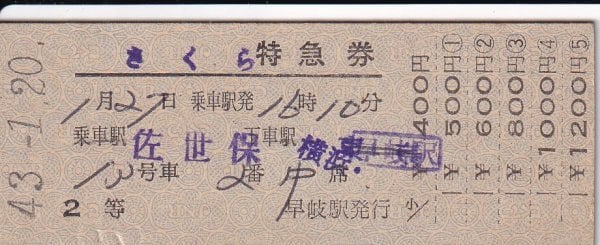 43.-1.20.
さくら特急券
1月27日 乗車駅発16時10分
乗車駅 佐世保 下車駅 横浜・東
早岐駅
13号車 2番中席
2等 早岐駅発行
¥400円
¥500円①
¥600円②
¥800円③
¥1000円④
¥1200円⑤